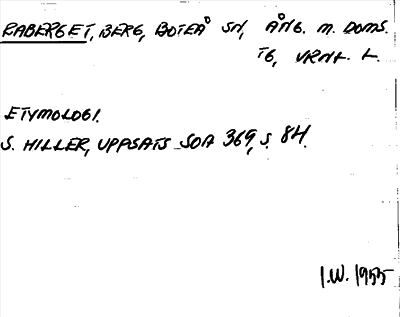 RABERGET, BERG, BOTEÅ SN, ÅNG. M. DOMS.
TG, VRNL. L.
ETYMOLOGI.
S. HILLER, UPPSATS SOA 369, S. 84.
I.W. 1955